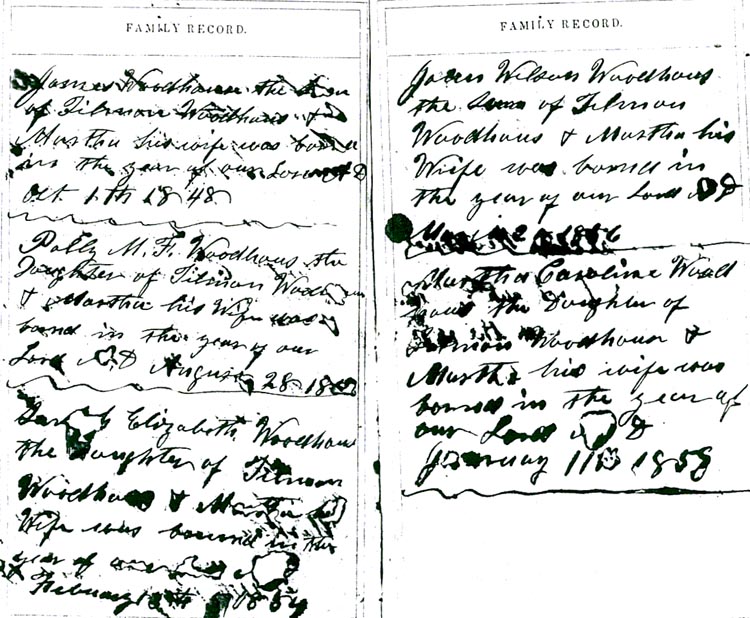 FAMILY RECORD.
James Woodhouse the Son
of Tilmon Woodhous &
Martha his wife was born
in the year of our Lord A D
Oct. 1th 1848
Polly M. F. Woodhous the
Daughter of Tilmon
& Martha his Wife was
bornd in the year of our
Lord A D August 28
Elizabeth Woodhous
the Daughter of Tilmon
Woodhous & Martha his
Wife was bornd in the
year of our Lord
February 1854
FAMILY RECORD.
Wilson Woodhous
the Sun of Tilmon
Woodhous & Martha his
Wife was bornd in
the year of our Lord A D
2 1856
Martha Caroline Wood
hous the Daughter of
Tilmon Woodhous &
Martha his wife was
bornd in the year of
our Lord A D
January 11th 1858